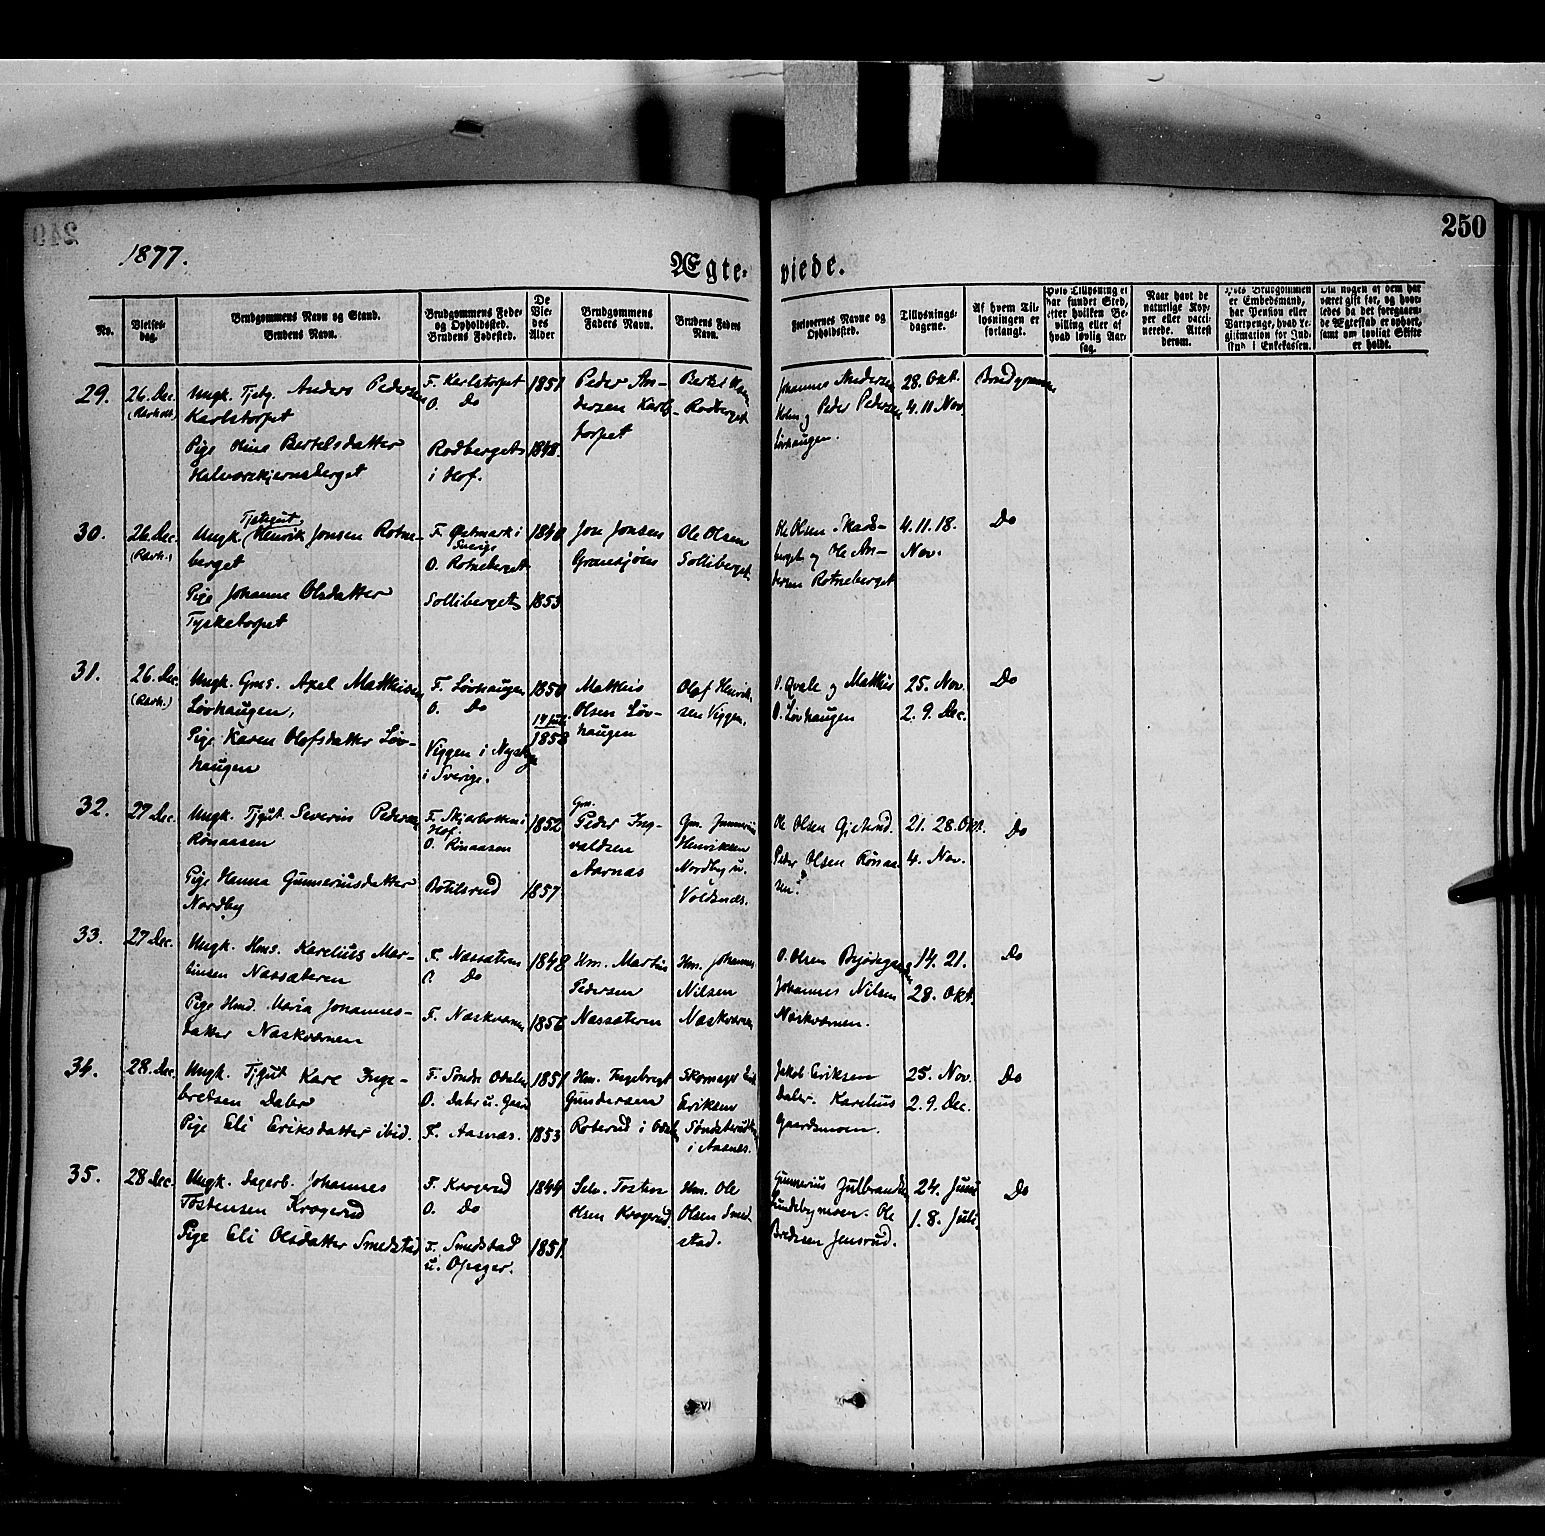 250
1877.
Ægteviede.
No.
Vielses-
dag.
Brudgommens Navn og Stand.
Brudens Navn.
Brudgommens Føde-
og Opholdssted.
Brudens Fødested.
De
Vie-
des
Alder
Brudgommens
Faders Navn.
Brudens Faders
Navn.
Forlovernes Navne og
Opholdssted.
Tillysnings-
dagene.
Af hvem Til-
lysningen er
forlangt.
Hvis Tillysning ei
har fundet Sted,
efter hvilken Be-
villing eller af
hvad lovlig Aar-
sag.
Naar havt de
naturlige Kop-
per eller vacci-
nerede. Attest
derom.
Hvis Brudgommen
er Embedsmand,
har Pension eller
Vartpenge, hvad Le-
gitimation for Ind-
skud i Enkekassen.
Om nogen af dem har
været gift før, og hvor-
ledes da det foregaaen-
de Ægteskab er ophørt,
samt om lovligt Skifte
er holdt.
29.
26. Dec.
Ungk. Tjstg. Anders Pedersen
Karlstorpet
Pige Bertelsdatter
Halvorskjernsberget
F. Karlstorpet
O. Do
Rodberget
i Hof.
1851
1848.
Peder An-
dersen Karls-
torpet
Bertel
Rodberget
Johannes Andersen
Holm og Peder Pedersen
Løvhaugen.
28. Okt.
4. 11 Nov
Brudgommen
30.
26. Dec.
(Aash.)
Ungk. Tjstgut Henrik Jonsen Rotne-
berget
Pige Johanne Olsdatter
Tysketorpet
F. Østmark i
Sverige
O. Rotneberget
Solliberget
1840
1853
Jon Jonsen
Granesjøen
Ole Olsen
Solliberget
Ole Olsen Skads-
berget og Ole An-
dersen Rotneberget
4. 11. 18.
Nov.
Do
31.
26. Dec.
(Aash.)
Ungk. Gms. Axel Mathisen
Løvhaugen,
Pige Karen Olofsdatter Løv-
haugen
F. Løvhaugen
O. Do
Viggen i Nyskoga
i Sverige.
1850
1853
Mathis
Olsen Løv-
haugen
Olof Henrik-
sen Viggen
O. Qvale og Mathis
O. Løvhaugen
25. Nov.
2. 9. Dec.
Do
32.
27 Dec.
Ungk. Tjgut. Severin Pedersen
Rønaasen
Pige Hanna Gunneriusdatter
Nordby
F. Skjærbotten i
Hof.
O. Rønaasen
Botilsrud
1852
1857
Gm.
Peder Ing-
valdsen
Aarnæs
Gm. Gunnerius
Henriksen
Nordby u.
Voldsnæs.
Ole Olsen Gjetsrud.
Peder Olsen Rønaa-
sen.
21. 28. Okt.
4. Nov.
Do
33.
27 Dec.
Ungk. Hms. Karelius Mar-
tinsen Nassæteren
Pige Hmd. Maria Johannes-
datter Naskværnen
F. Nassæteren
O. Do
F. Naskværnen
1848
1856
Hm. Martin
Pedersen
Nassæteren
Hm. Johannes
Nilsen
Naskværnen
O. Olsen
Johannes Nilsen
Naskværnen.
14. 21.
28. Okt.
Do
34.
28. Dec.
Ungk. Tjgut Kare Inge-
bretsen Daler
Pige Eli Eriksdatter ibid.
F. Søndre Odalen
O. Daler u.
F. Aasnæs.
1851
1853
Hm. Ingebregt
Gundersen
Roterud i Odalen
Skomager
Eriksen
i Aasnes.
Jakob Eriksen
Daler. Karelius
Gaardsmoen.
25. Nov.
2. 9. Dec.
Do
35.
28 Dec.
Ungk. Dagarb. Johannes
Tostensen Krogerud
Pige Eli Olsdatter Smedstad
F. Krogerud
O. Do
F. Smedstad
u. Opager.
1844
1851.
Selv. Tosten
Olsen Krogerud.
Hm. Ole
Olsen Smed-
stad.
Gunnerius Julbrandsen
Lundebymoen. Ole
Bredesen Jensrud.
24. Juni
1. 8. Juli.
Do